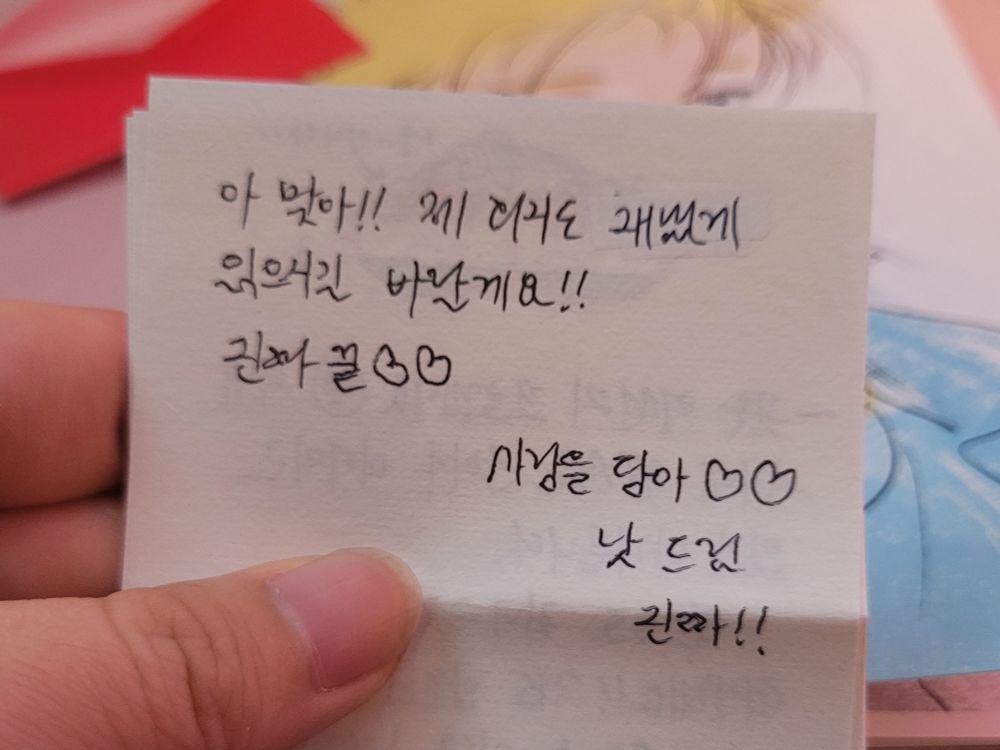 아 맞아!! 제 재밌게
읽으시길 바랄게요!!
진짜 끝♡♡
사랑을 담아♡♡
낫 드림
진짜!!